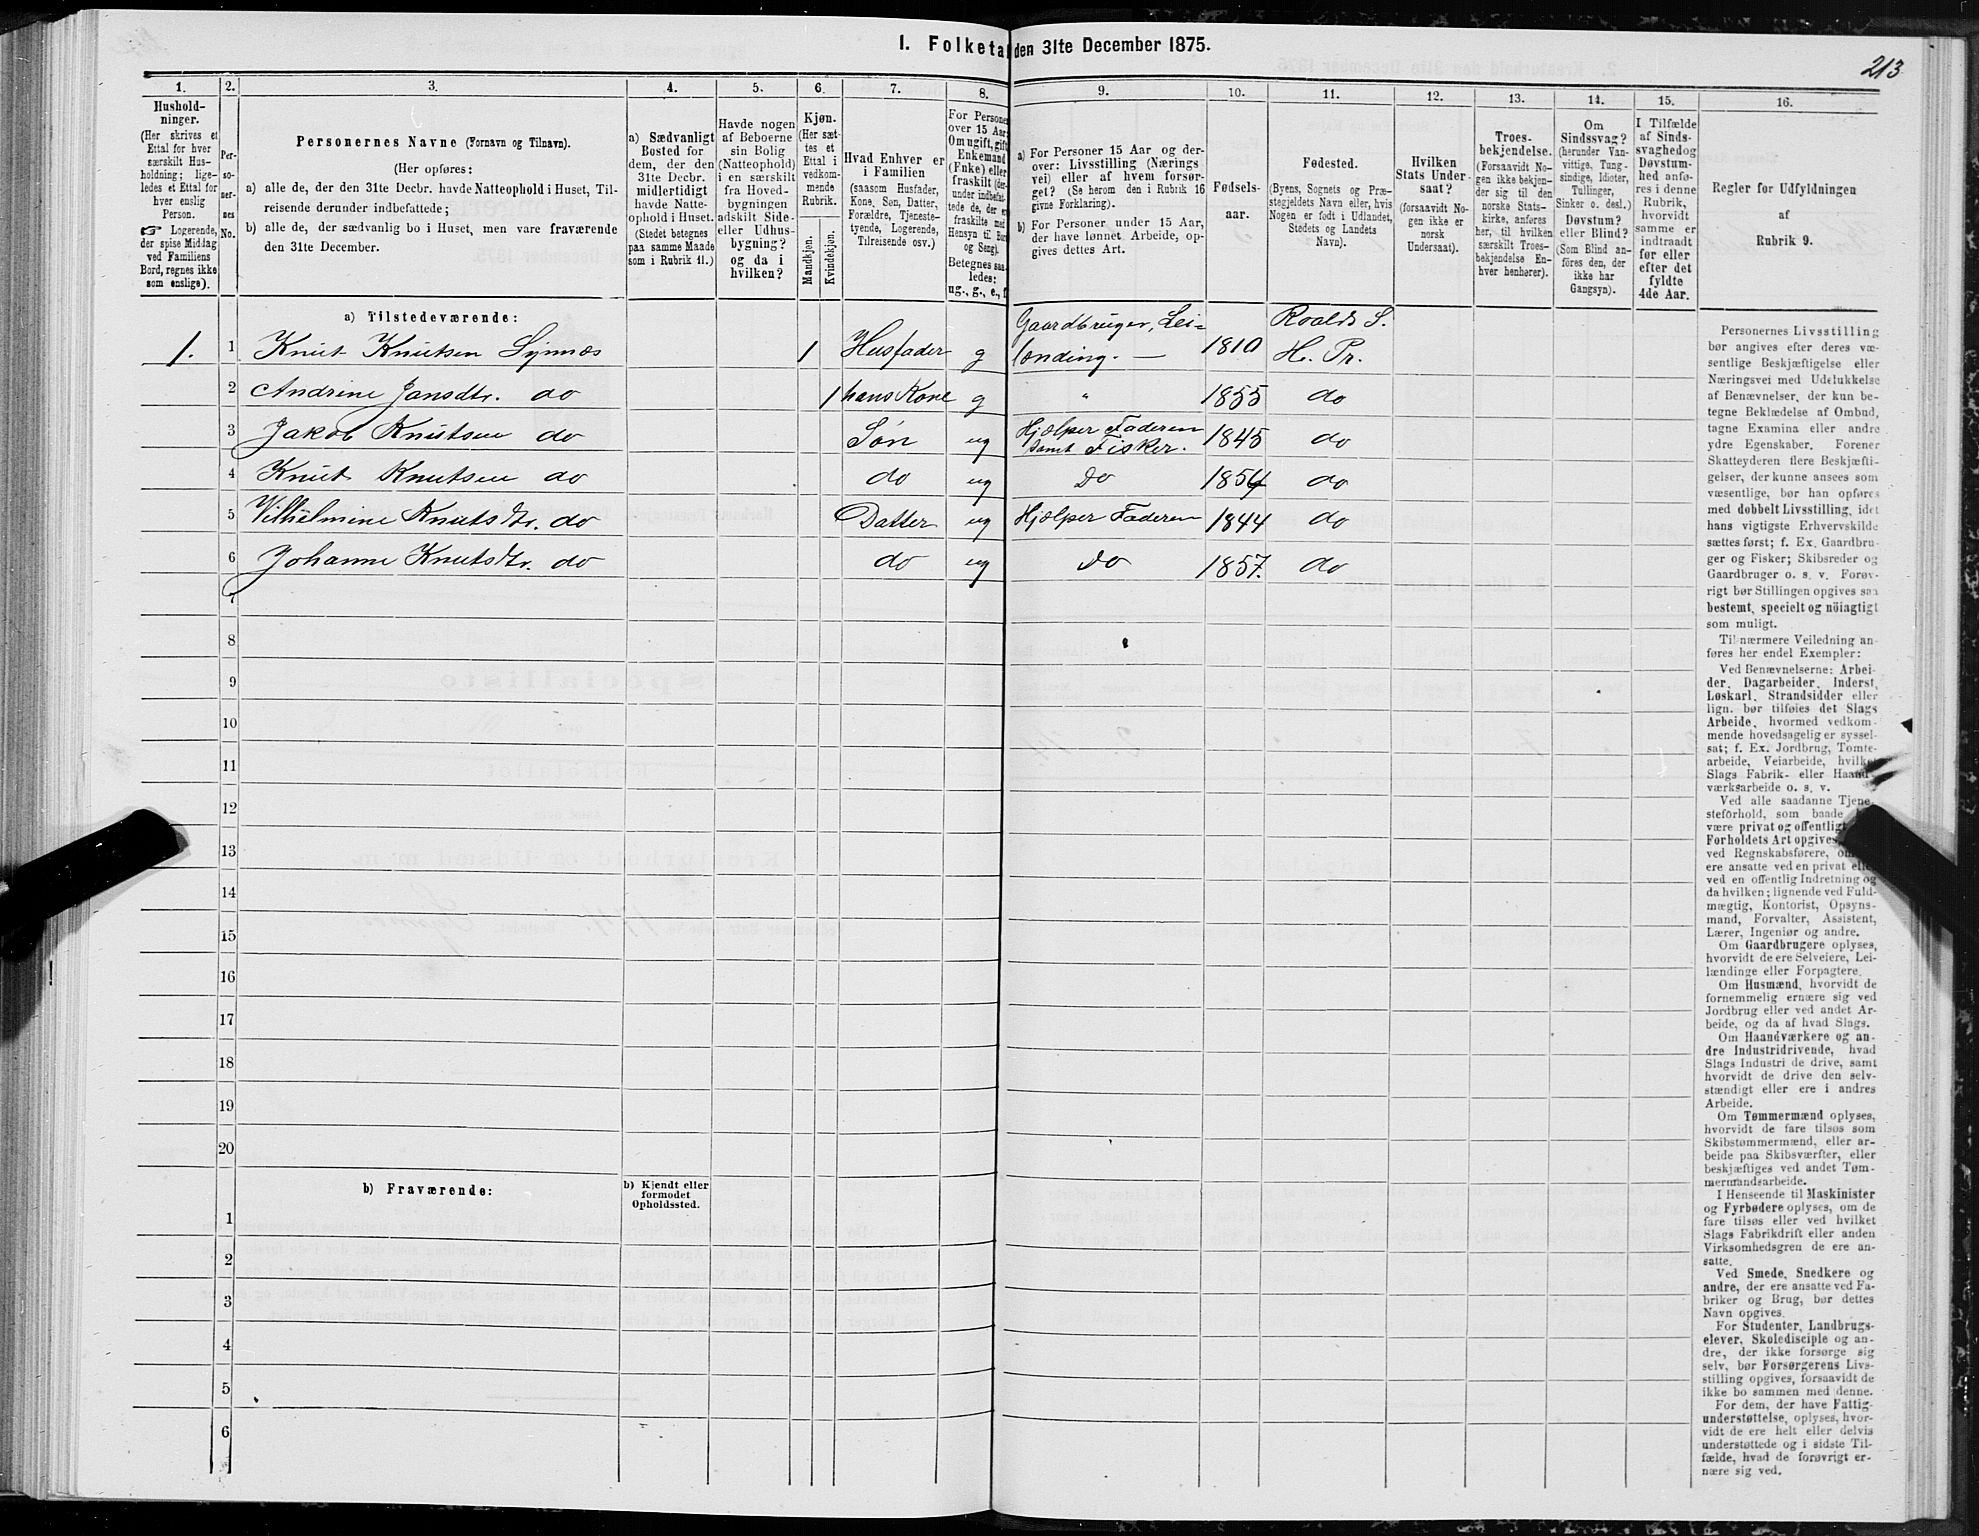 I. Folketa den 31te December 1875.
213
1.
2.
3.
4.
5.
6.
7.
8.
9.
10.
11.
12.
13.
14.
15.
16.
Hushold-
ninger.
(Her skrives et
Ettal for hver
særskilt Hus-
holdning; lige-
ledes et Ettal for
hver enslig
Person.
☞ Logerende,
der spise Middag
ved Familiens
Bord, regnes ikke
som enslige).
Per-
so-
ner-
nes
No.
Personernes Navne (Fornavn og Tilnavn).
(Her opføres:
a) alle de, der den 31te Decbr. havde Natteophold i Huset, Til-
reisende derunder indbefattede;
b) alle de, der sædvanlig bo i Huset, men vare fraværende
den 31te December.
a) Sædvanligt
Bosted for
dem, der den
31te Decbr.
midlertidigt
havde Natte-
ophold i Huset.
(Stedet betegnes
paa samme Maade
som i Rubrik 11.)
Havde nogen
af Beboerne
sin Bolig
(Natteophold)
i en særskilt
fra Hoved-
bygningen
adskilt Side-
eller Udhus-
bygning?
og da i
hvilken?
Kjøn.
(Her sæt-
tes et
Ettal i
vedkom-
mende
Rubrik.
Mandkjøn.
Kvindekjøn.
Hvad Enhver er
i Familien
(saasom Husfader,
Kone, Søn, Datter,
Forældre, Tjeneste-
tyende, Logerende,
Tilreisende osv.)
For Persone
over 15 Aar:
Om ugift, gift
Enkemand
(Enke) eller
fraskilt (der-
under indbefat-
tede de, der er
fraskilte med
Hensyn til Bo
og Seng).
Betegnes saa-
ledes:
ug., g., e., f
a) For Personer 15 Aar og der-
over: Livsstilling (Nærings
vei) eller af hvem forsør-
get? (Se herom den i Rubrik 16
givne Forklaring).
b) For Personer under 15 Aar,
der have lønnet Arbeide, op-
gives dettes Art.
Fødsels-
aar.
Fødested.
(Byens, Sognets og Præ-
stegjeldets Navn eller, hvis
Nogen er født i Udlandet,
Stedets og Landets
Navn).
Hvilken
Stats Under
saat?
(forsaavidt No-
gen ikke er
norsk
Undersaat).
Troes-
bekjendelse.
(Forsaavidt No-
gen ikke bekjen-
der sig til den
norske Stats-
kirke, anføres
her, til hvilken
særskilt Troes-
bekjendelse En-
hver henhører).
Om
Sindssvag?
(herunder Van-
vittige, Tung-
sindige, Idioter,
Tullinger,
Sinker o. desl.)
Døvstum?
eller Blind?
(Som Blind an-
føres den, der
ikke har
Gangsyn).
I Tilfælde
af Sinds-
svaghed og
Døvstum-
hed anfø-
res i denne
Rubrik,
hvorvidt
samme er
indtraadt
før eller
efter det
fyldte
4de Aar.
Regler for Udfyldningen
af
Rubrik 9.
a) Tilstedeværende:
1. 1 Knut Knutsen Synnæs 1 Husfader g Gaardbruger, Lei-
lænding. — 1810 Roalds S.
H. Pr.
2 Andrine Jansdtr. do 1 hans Kone g " 1855 do
3 Jakob Knutsen do Søn ug Hjælper Faderen
samt Fisker. 1845 do
4 Knut Knutsen do do ug Do 1854 do
5 Vilhelmine Knutsdtr. do Datter ug Hjælper Faderen 1844 do
6 Johanne Knutsdtr. do do ug Do 1857. do
7
8
9
10
11
12
13
14
15
16
17
18
19
20
b) Fraværende:
b) Kjendt eller
formodet
Opholdssted.
1
2
3
4
5
6
Personernes Livsstilling
bør angives efter deres væ-
sentlige Beskjæftigelse eller
Næringsvei med Udelukkelse
af Benævnelser, der kun be-
tegne Beklædelse af Ombud,
tagne Examina eller andre
ydre Egenskaber. Forener
Skatteyderen flere Beskjæfti-
gelser, der kunne ansees som
væsentlige, bør han opføres
med dobbelt Livsstilling, idet
hans vigtigste Erhvervskilde
sættes først; f. Ex. Gaardbru-
ger og Fisker; Skibsreder og
Gaardbruger o. s. v. Forøv-
rigt bør Stillingen opgives saa
bestemt, specielt og nöiagtigt
som muligt.
Til nærmere Veiledning an-
føres her endel Exempler:
Ved Benævnelserne: Arbei-
der, Dagarbeider, Inderst,
Løskarl, Strandsidder eller
lign. bør tilføies det Slags
Arbeide, hvormed vedkom-
mende hovedsagelig er syssel-
sat; f. Ex. Jordbrug, Tomte-
arbeide, Veiarbeide, hvilket
Slags Fabrik- eller Haand-
værksarbeide o. s. v.
Ved alle saadanne Tjene-
steforhold, som baade
være privat og offentligt
Forholdets Art opgives,
ved Regnskabsførere,
ere ansatte ved en privat eller
ved en offentlig Indretning og
da hvilken; lignende ved Fuld-
mægtig, Kontorist, Opsyns-
mand, Forvalter, Assistent,
Lærer, Ingeniør og andre.
Om Gaardbrugere oplyses,
hvorvidt de ere Selveiere, Lei-
lændinge eller Forpagtere.
Om Husmænd, hvorvidt de
fornemmelig ernære sig ved
Jordbrug eller ved andet Ar-
beide, og da af hvad Slags.
Om Haandværkere og an-
dre Industridrivende, hvad
Slags Industri de drive, samt
hvorvidt de drive den selv-
stændigt eller ere i andres
Arbeide.
Om Tømmermænd oplyses,
hvorvidt de fare tilsøs som
Skibstømmermænd, eller ar-
beide paa Skibsværfter, eller
beskjæftiges ved andet Tøm-
mermandsarbeide.
I Henseende til Maskinister
og Fyrbødere oplyses, om de
fare tilsøs eller ved hvilket
Slags Fabrikdrift eller anden
Virksomhedsgren de ere an-
satte.
Ved Smede, Snedkere og
andre, der ere ansatte ved Fa-
briker og Brug, bør dettes
Navn opgives.
For Studenter, Landbrugs-
elever, Skoledisciple og an-
dre, der ikke forsørge sig
selv, bør Forsørgerens Livs-
stilling opgives, forsaavidt de
ikke bo sammen med denne.
For dem, der have Fattig-
understøttelse, oplyses, hvor-
vidt de ere helt eller delvis
understøttede og i sidste Til-
fælde, hvad de forøvrigt er-
nære sig ved.